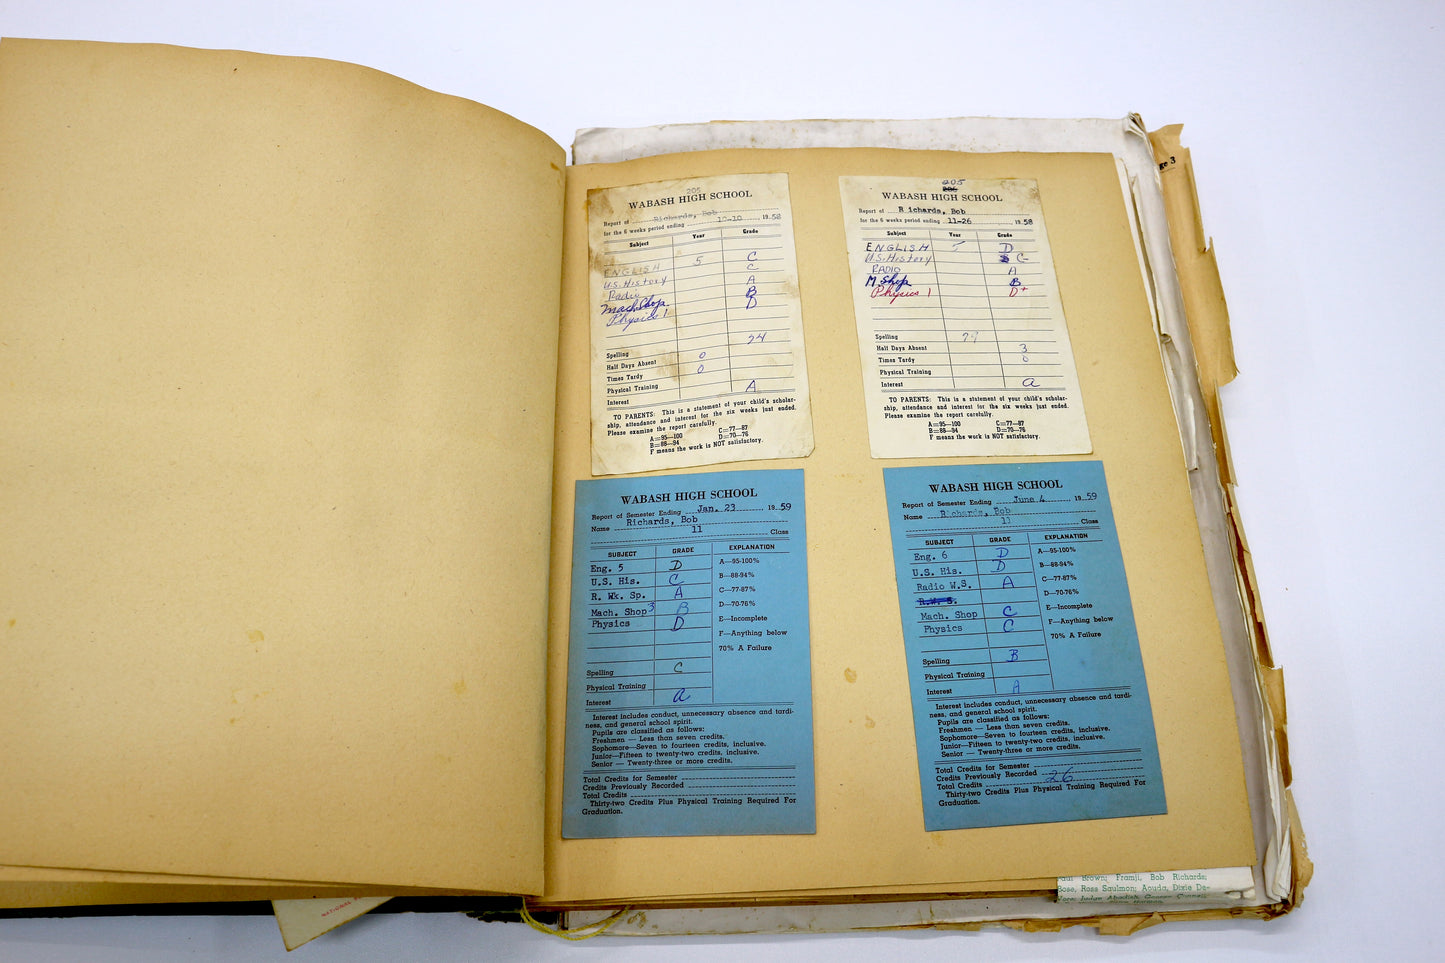 205
WABASH HIGH SCHOOL
Report of Richards, Bob
for the 6 weeks period ending 10-10 1958
Subject Year Grade
ENGLISH 5 C
U.S. History C
Radio A
Mach Shop B
Physics 1 D
Spelling 74
Half Days Absent 0
Times Tardy 0
Physical Training
Interest A
TO PARENTS: This is a statement of your child's scholar-
ship, attendance and interest for the six weeks just ended.
Please examine the report carefully.
A=95—100 C=77—87
B=88—94 D=70—76
F means the work is NOT satisfactory.
205
206
WABASH HIGH SCHOOL
Report of Richards, Bob
for the 6 weeks period ending 11-26 1958
Subject Year Grade
ENGLISH 5 D
U.S. History C-
RADIO A
M. Shop B
Physics 1 D+
Spelling 79
Half Days Absent 3
Times Tardy 0
Physical Training
Interest a
TO PARENTS: This is a statement of your child's scholar-
ship, attendance and interest for the six weeks just ended.
Please examine the report carefully.
A=95—100 C=77—87
B=88—94 D=70—76
F means the work is NOT satisfactory.
WABASH HIGH SCHOOL
Report of Semester Ending Jan. 23 1959
Name Richards, Bob
11 Class
SUBJECT GRADE EXPLANATION
Eng. 5 D A—95-100%
U.S. His. C B—88-94%
R. Wk. Sp. A C—77-87%
Mach. Shop 3 B D—70-76%
Physics D E—Incomplete
F—Anything below
70% A Failure
Spelling C
Physical Training
Interest a
Interest includes conduct, unnecessary absence and tardi-
ness, and general school spirit.
Pupils are classified as follows:
Freshmen — Less than seven credits.
Sophomore—Seven to fourteen credits, inclusive.
Junior—Fifteen to twenty-two credits, inclusive.
Senior — Twenty-three or more credits.
Total Credits for Semester
Credits Previously Recorded
Total Credits
Thirty-two Credits Plus Physical Training Required For
Graduation.
WABASH HIGH SCHOOL
Report of Semester Ending June 4 1959
Name Richards, Bob
11 Class
SUBJECT GRADE EXPLANATION
Eng. 6 D A—95-100%
U.S. His. D B—88-94%
Radio W.S. A C—77-87%
R.W. S. D—70-76%
Mach. Shop C E—Incomplete
Physics C F—Anything below
70% A Failure
Spelling B
Physical Training
Interest A
Interest includes conduct, unnecessary absence and tardi-
ness, and general school spirit.
Pupils are classified as follows:
Freshmen — Less than seven credits.
Sophomore—Seven to fourteen credits, inclusive.
Junior—Fifteen to twenty-two credits, inclusive.
Senior — Twenty-three or more credits.
Total Credits for Semester
Credits Previously Recorded
Total Credits 26
Thirty-two Credits Plus Physical Training Required For
Graduation.
ge 3
NATIONAL
Brown; Framji, Bob Richards;
Bose, Ross Saulmon; Aouda, Dixie De-